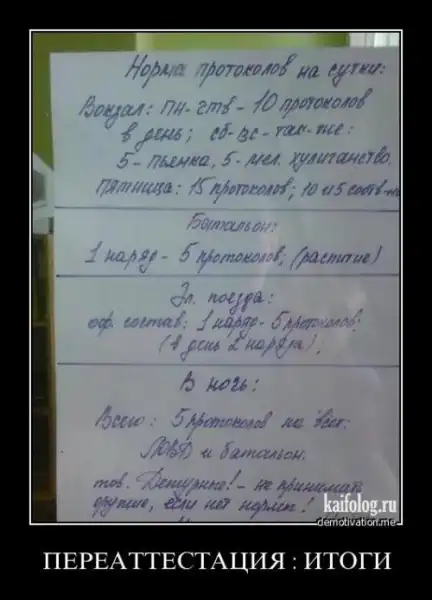 Норма протоколов на сутки:
Вокзал: пн-чтв - 10 протоколов
в день; сб-вс - так-же:
5 - пьянка, 5 - мел. хулиганство.
пятница: 15 протоколов; 10 и 5 соотв-но
Батальон:
1 наряд - 5 протоколов; (распитие)
Эл. поезда:
оф. состав: 1 наряд - 5 протоколов;
(в день 2 наряда);
В ночь:
Всего: 5 протоколов на всех:
ЛОВД и батальон.
тов. Дежурные! - не принимать
оружие, если нет нормы!
kaifolog.ru
demotivation.me
ПЕРЕАТТЕСТАЦИЯ : ИТОГИ